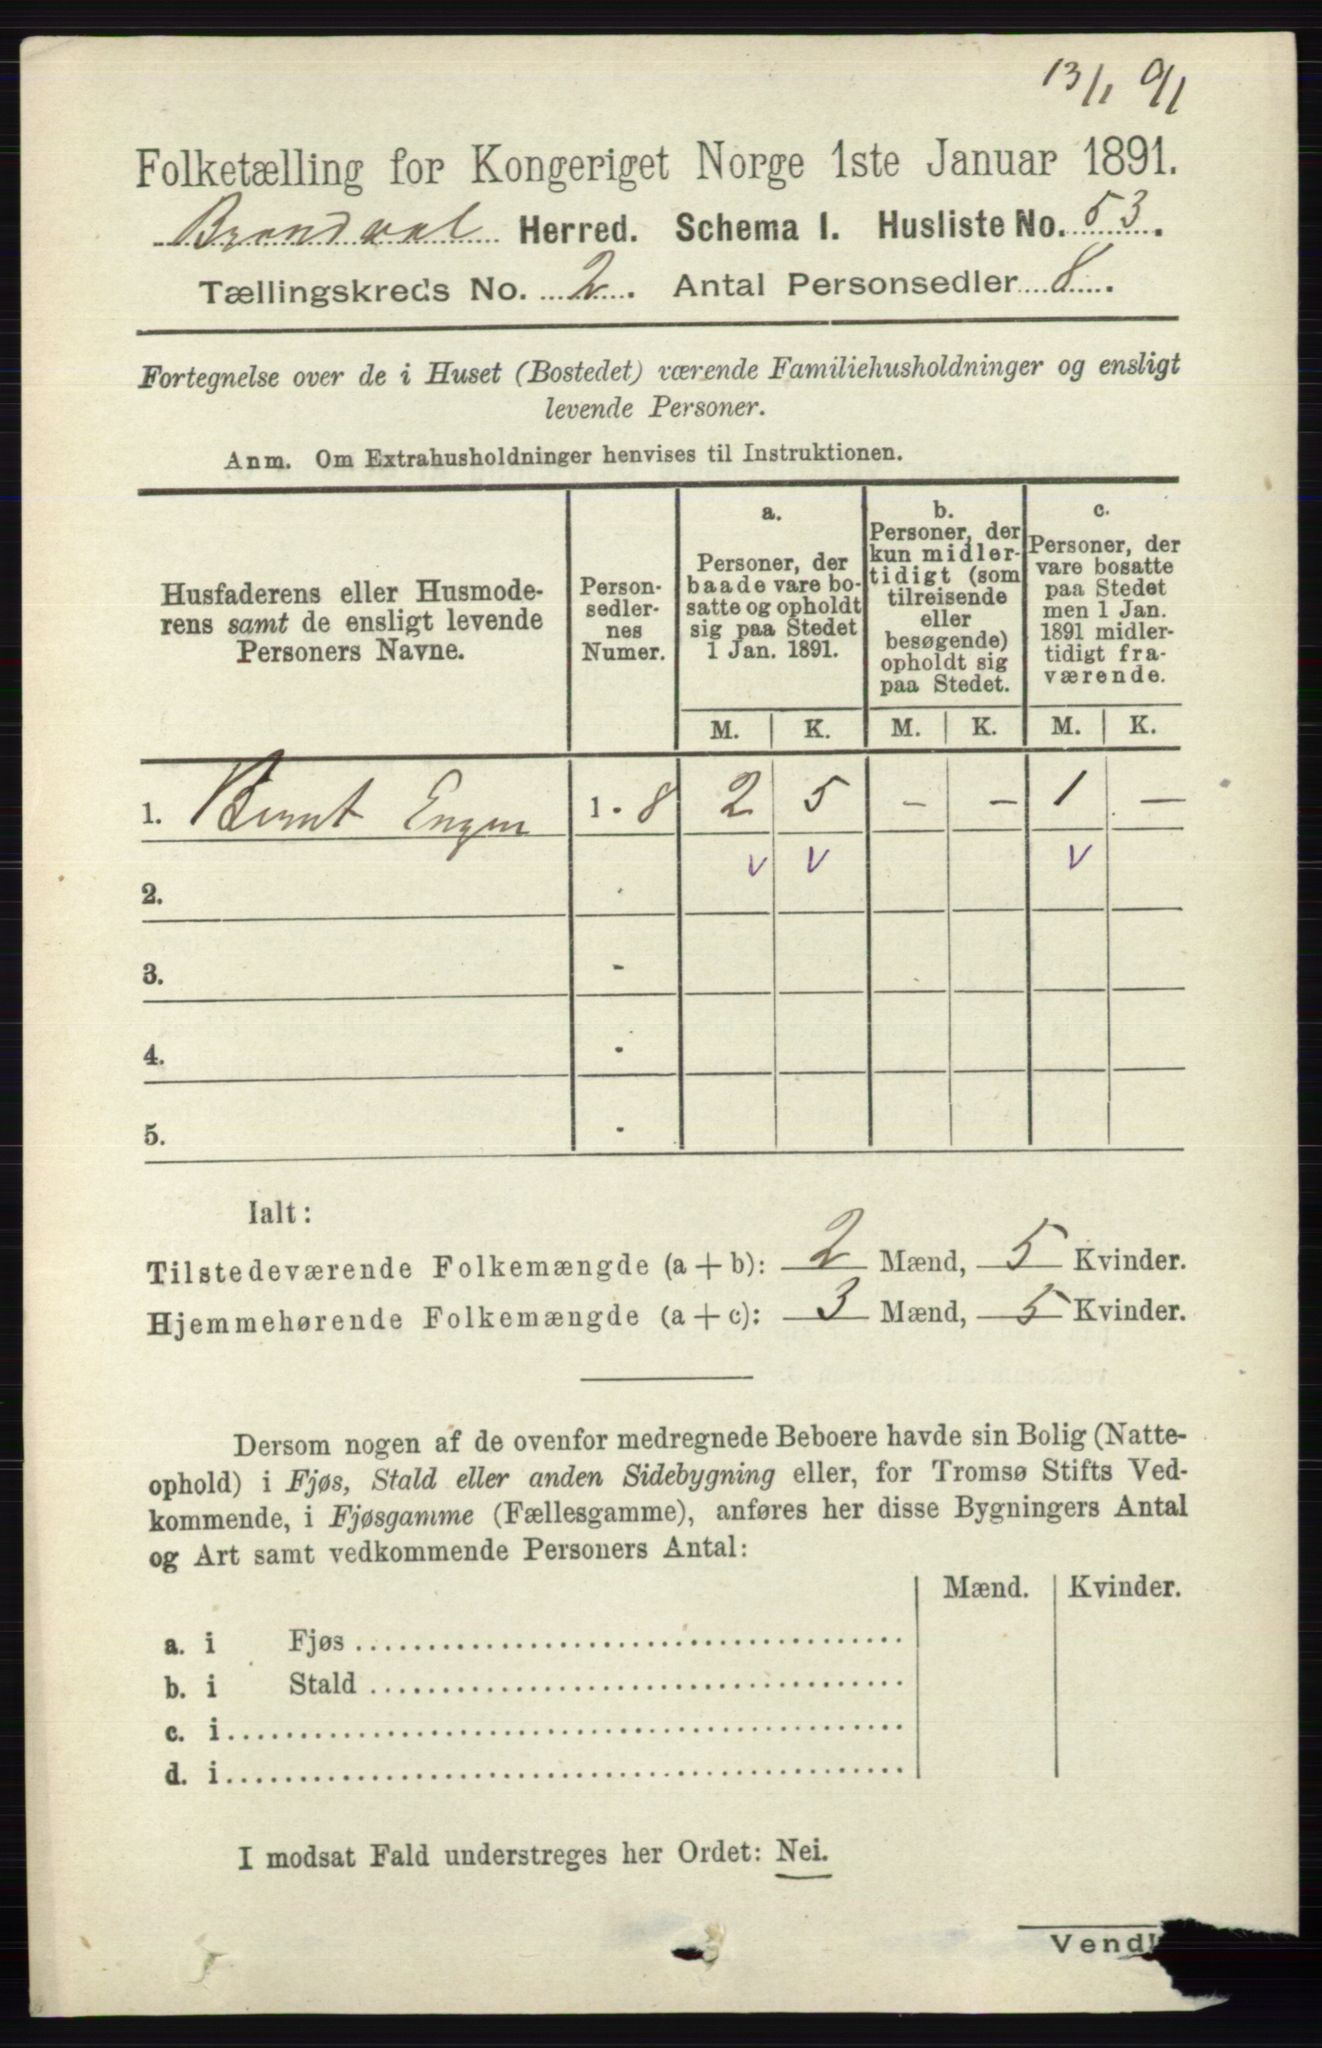 13/1 91
Folketælling for Kongeriget Norge 1ste Januar 1891.
Brandval Herred. Schema I. Husliste No. 53.
Tællingskreds No. 2. Antal Personsedler 8.
Fortegnelse over de i Huset (Bostedet) værende Familiehusholdninger og ensligt
levende Personer.
Anm. Om Extrahusholdninger henvises til Instruktionen.
Husfaderens eller Husmode-
rens samt de ensligt levende
Personers Navne.
Person-
sedler-
nes
Numer.
a.
Personer, der
baade vare bo-
satte og opholdt
sig paa Stedet
1 Jan. 1891.
b.
Personer, der
kun midler-
tidigt (som
tilreisende
eller
besøgende)
opholdt sig
paa Stedet.
c.
Personer, der
vare bosatte
paa Stedet
men 1 Jan.
1891 midler-
tidigt fra-
værende.
M. K. M. K. M. K.
1. Bernt Enger 1 - 8 2 5 - - 1 -
v v v
2.
3. -
4. -
5. -
Ialt:
Tilstedeværende Folkemængde (a + b): 2 Mænd, 5 Kvinder.
Hjemmehørende Folkemængde (a + c): 3 Mænd, 5 Kvinder.
Dersom nogen af de ovenfor medregnede Beboere havde sin Bolig (Natte-
ophold) i Fjøs, Stald eller anden Sidebygning eller, for Tromsø Stifts Ved-
kommende, i Fjøsgamme (Fællesgamme), anføres her disse Bygningers Antal
og Art samt vedkommende Personers Antal:
Mænd. Kvinder.
a. i Fjøs
b. i Stald
c. i
d. i
I modsat Fald understreges her Ordet: Nei.
Vend!